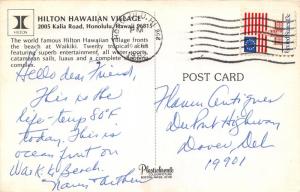 HILTON HAWAIIAN VILLAGE
2005 Kalia Road, Honolulu, Hawaii 96815
HILTON
The world famous Hilton Hawaiian Village fronts
the beach at Waikiki. Twenty tropical acres
featuring superb entertainment, all water sports,
catamaran sails, luaus and a complete
Hello dear Friend,
This is the
life - temp 80°F
today. This is
ocean front on
Waikiki Beach.
PM
POST CARD
Plastichrome
Antiques
DuPont Highway
Dover, Del
19901